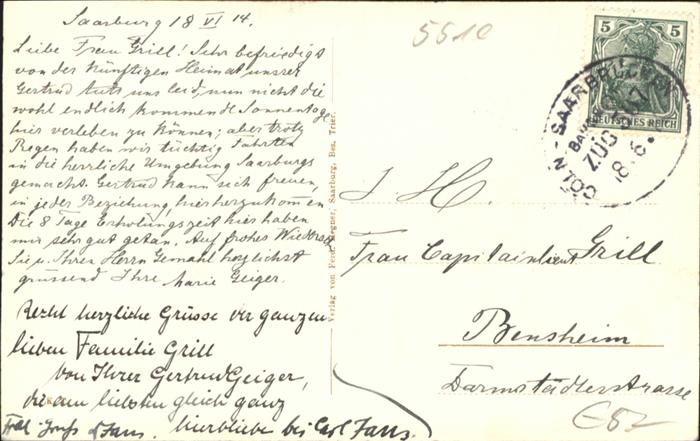 Saarburg 18 VI 14.
Liebe Frau Grill! Sehr befriedigt
von der künftigen Heimat unsrer
Gertrud tuts uns leid, nun nicht die
wohl endlich kommende Sonnentage
hier verleben zu können; aber trotz
Regen haben wir tüchtig Fahrten
in die herrliche Umgebung Saarburgs
gemacht. Gertrud kann sich freuen,
in jeder Beziehung, hierherzukommen
Die 8 Tage Erholungszeit hier haben
mir sehr gut getan. Auf frohes Wieders.
Sie u. Ihren Herrn Gemahl herzlichst
grüssend Ihre Marie Geiger.
Recht herzliche Grüsse der ganzen
lieben Familie Grill
von Ihrer Gertrud Geiger,
die am liebsten gleich ganz
hierbliebe bei Carl Faus.
Verlag von Ferd. Wegner, Saarburg, Bez. Trier.
5510
5 5
DEUTSCHES REICH
CÖLN - SAARBRÜCKEN
BAHNPOST
ZUG
18.6.
I. H.
Frau Capitainlieut Grill
Bensheim
Darmstädterstrasse